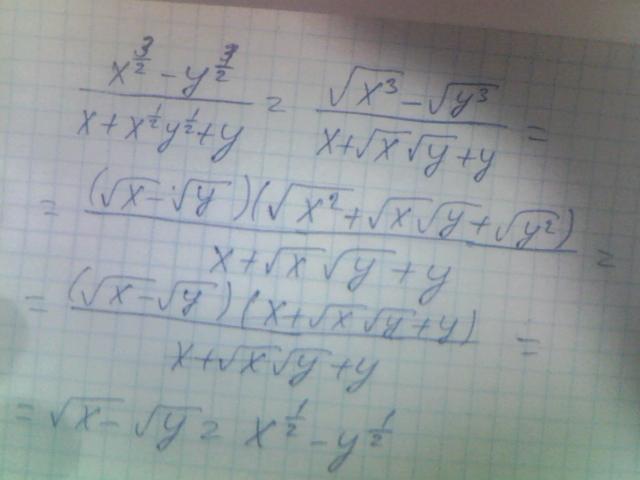 (x^(3/2) - y^(3/2))/(x + x^(1/2)y^(1/2) + y) = (√x³ - √y³)/(x + √x√y + y) =
= ((√x - √y)(√x² + √x√y + √y²))/(x + √x√y + y) =
= ((√x - √y)(x + √x√y + y))/(x + √x√y + y) =
= √x - √y = x^(1/2) - y^(1/2)